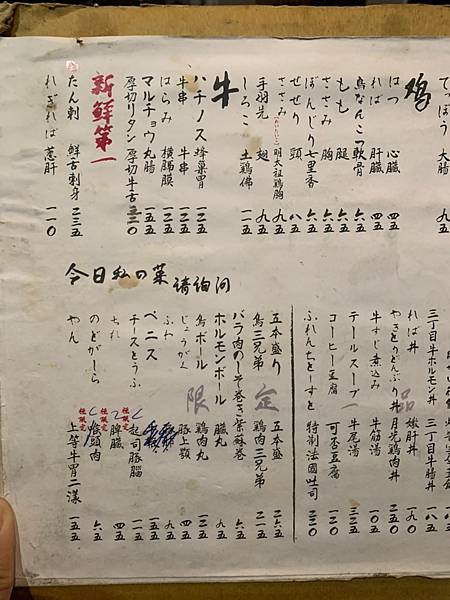 てっぽう 大腸
鶏
はつ 心臓 四五
ればー 肝臓 四五
鳥なんこつ 軟骨 六五
もも 腿 六五
ささみ 胸 六五
ぼんじり 七里香 六五
せせり 頸 八五
ささみ 明太祖鶏胸 九五
手羽先 翅 九五
しろこ 土鶏佛 一一五
牛
ハチノス 蜂巢胃 一二五
牛串 牛串 一二五
はらみ 橫膈膜 一五五
マルチョウ 丸腸 一五五
厚切りタン 厚切牛舌 二三〇
新鮮第一
たん刺 鮮舌刺身 二三五
ねぎればー 蔥肝 一一〇
今日私の菜 請詢問
三丁目牛ホルモン丼 三丁目牛腸丼 一八五
ればー丼 嫩肝丼 一九〇
やきとりどんぶり丼 月見鶏肉丼 二五〇
牛すじ煮込み 牛筋湯 一〇五
テールスープ 牛尾湯 二三五
コーヒー豆腐 可否豆腐
ふれんちとーすと 特制法國吐司 二二〇
限定一品
五本盛り 五本盛 二六五
鳥三兄弟 鶏肉三兄弟 二一五
バラ肉のしそ巻き 紫蘇卷 六五
ホルモンボール 臓丸 九五
鳥ボール 鶏肉丸 一二五
じょうがく 豚上顎 四五
ふわ 九五
ペニス 一五五
チーズとうふ 起司豚腦 一五五
ちれ 脾臓 四五
のどがーら 喉頭肉 六五
やん 上等牛胃二漾 一五五
極限定
極限定
極限定